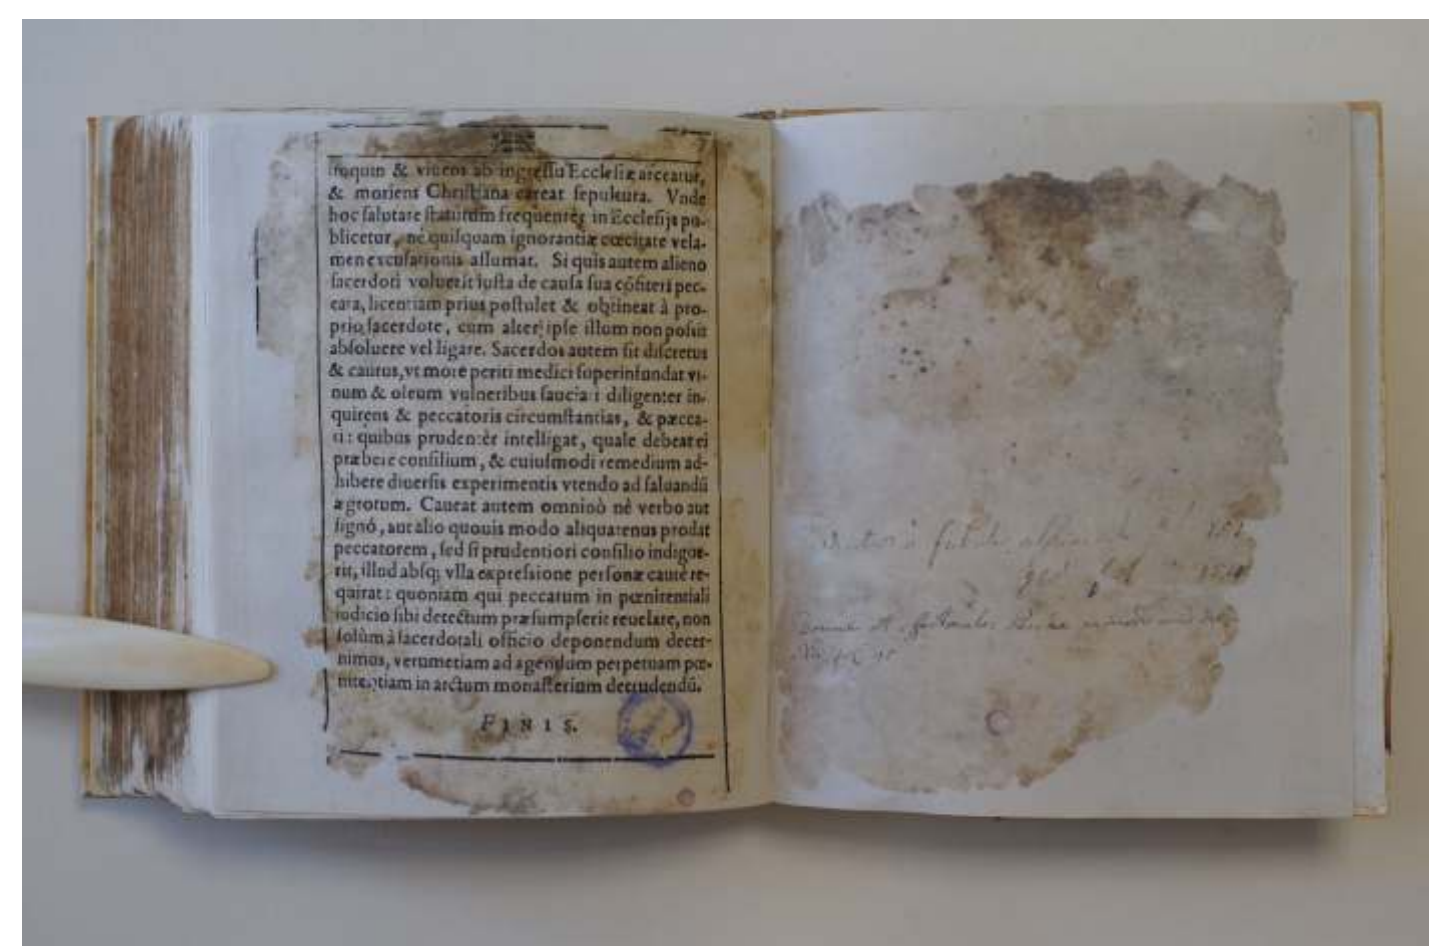 & viuens ab ingressu Ecclesiæ arceatur,
& moriens Christiana careat sepultura. Vnde
hoc salutare statutum frequentèr in Ecclesijs pu-
blicetur, nè quisquam ignorantiæ cœcitate vela-
men excusationis assumat. Si quis autem alieno
sacerdoti voluerit iusta de causa sua cõfiteri pec-
cata, licentiam prius postulet & obtineat à pro-
prio sacerdote, cum alter ipse illum non possit
absoluere vel ligare. Sacerdos autem sit discretus
& cautus, vt more periti medici superinfundat vi-
num & oleum vulneribus saucia i diligenter in-
quirens & peccatoris circumstantias, & pæcca-
ti: quibus prudentèr intelligat, quale debeat ei
præbere consilium, & cuiusmodi remedium ad-
hibere diuersis experimentis vtendo ad saluandũ
ægrotum. Caueat autem omninò nè verbo aut
signò, aut alio quouis modo aliquatenus prodat
peccatorem, sed si prudentiori consilio indigue-
rit, illud absq; vlla expressione personæ cautè re-
quirat: quoniam qui peccatum in pœnitentiali
iudicio sibi detectum præsumpserit reuelare, non
solùm à sacerdotali officio deponendum decer-
nimus, verumetiam ad agendum perpetuam pœ-
nitentiam in arctum monasterium detrudendũ.
FINIS.